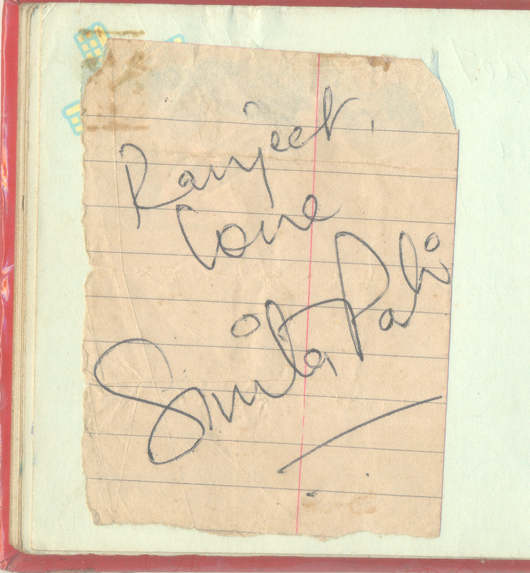 Ranjeet,
Love
Smita Patil